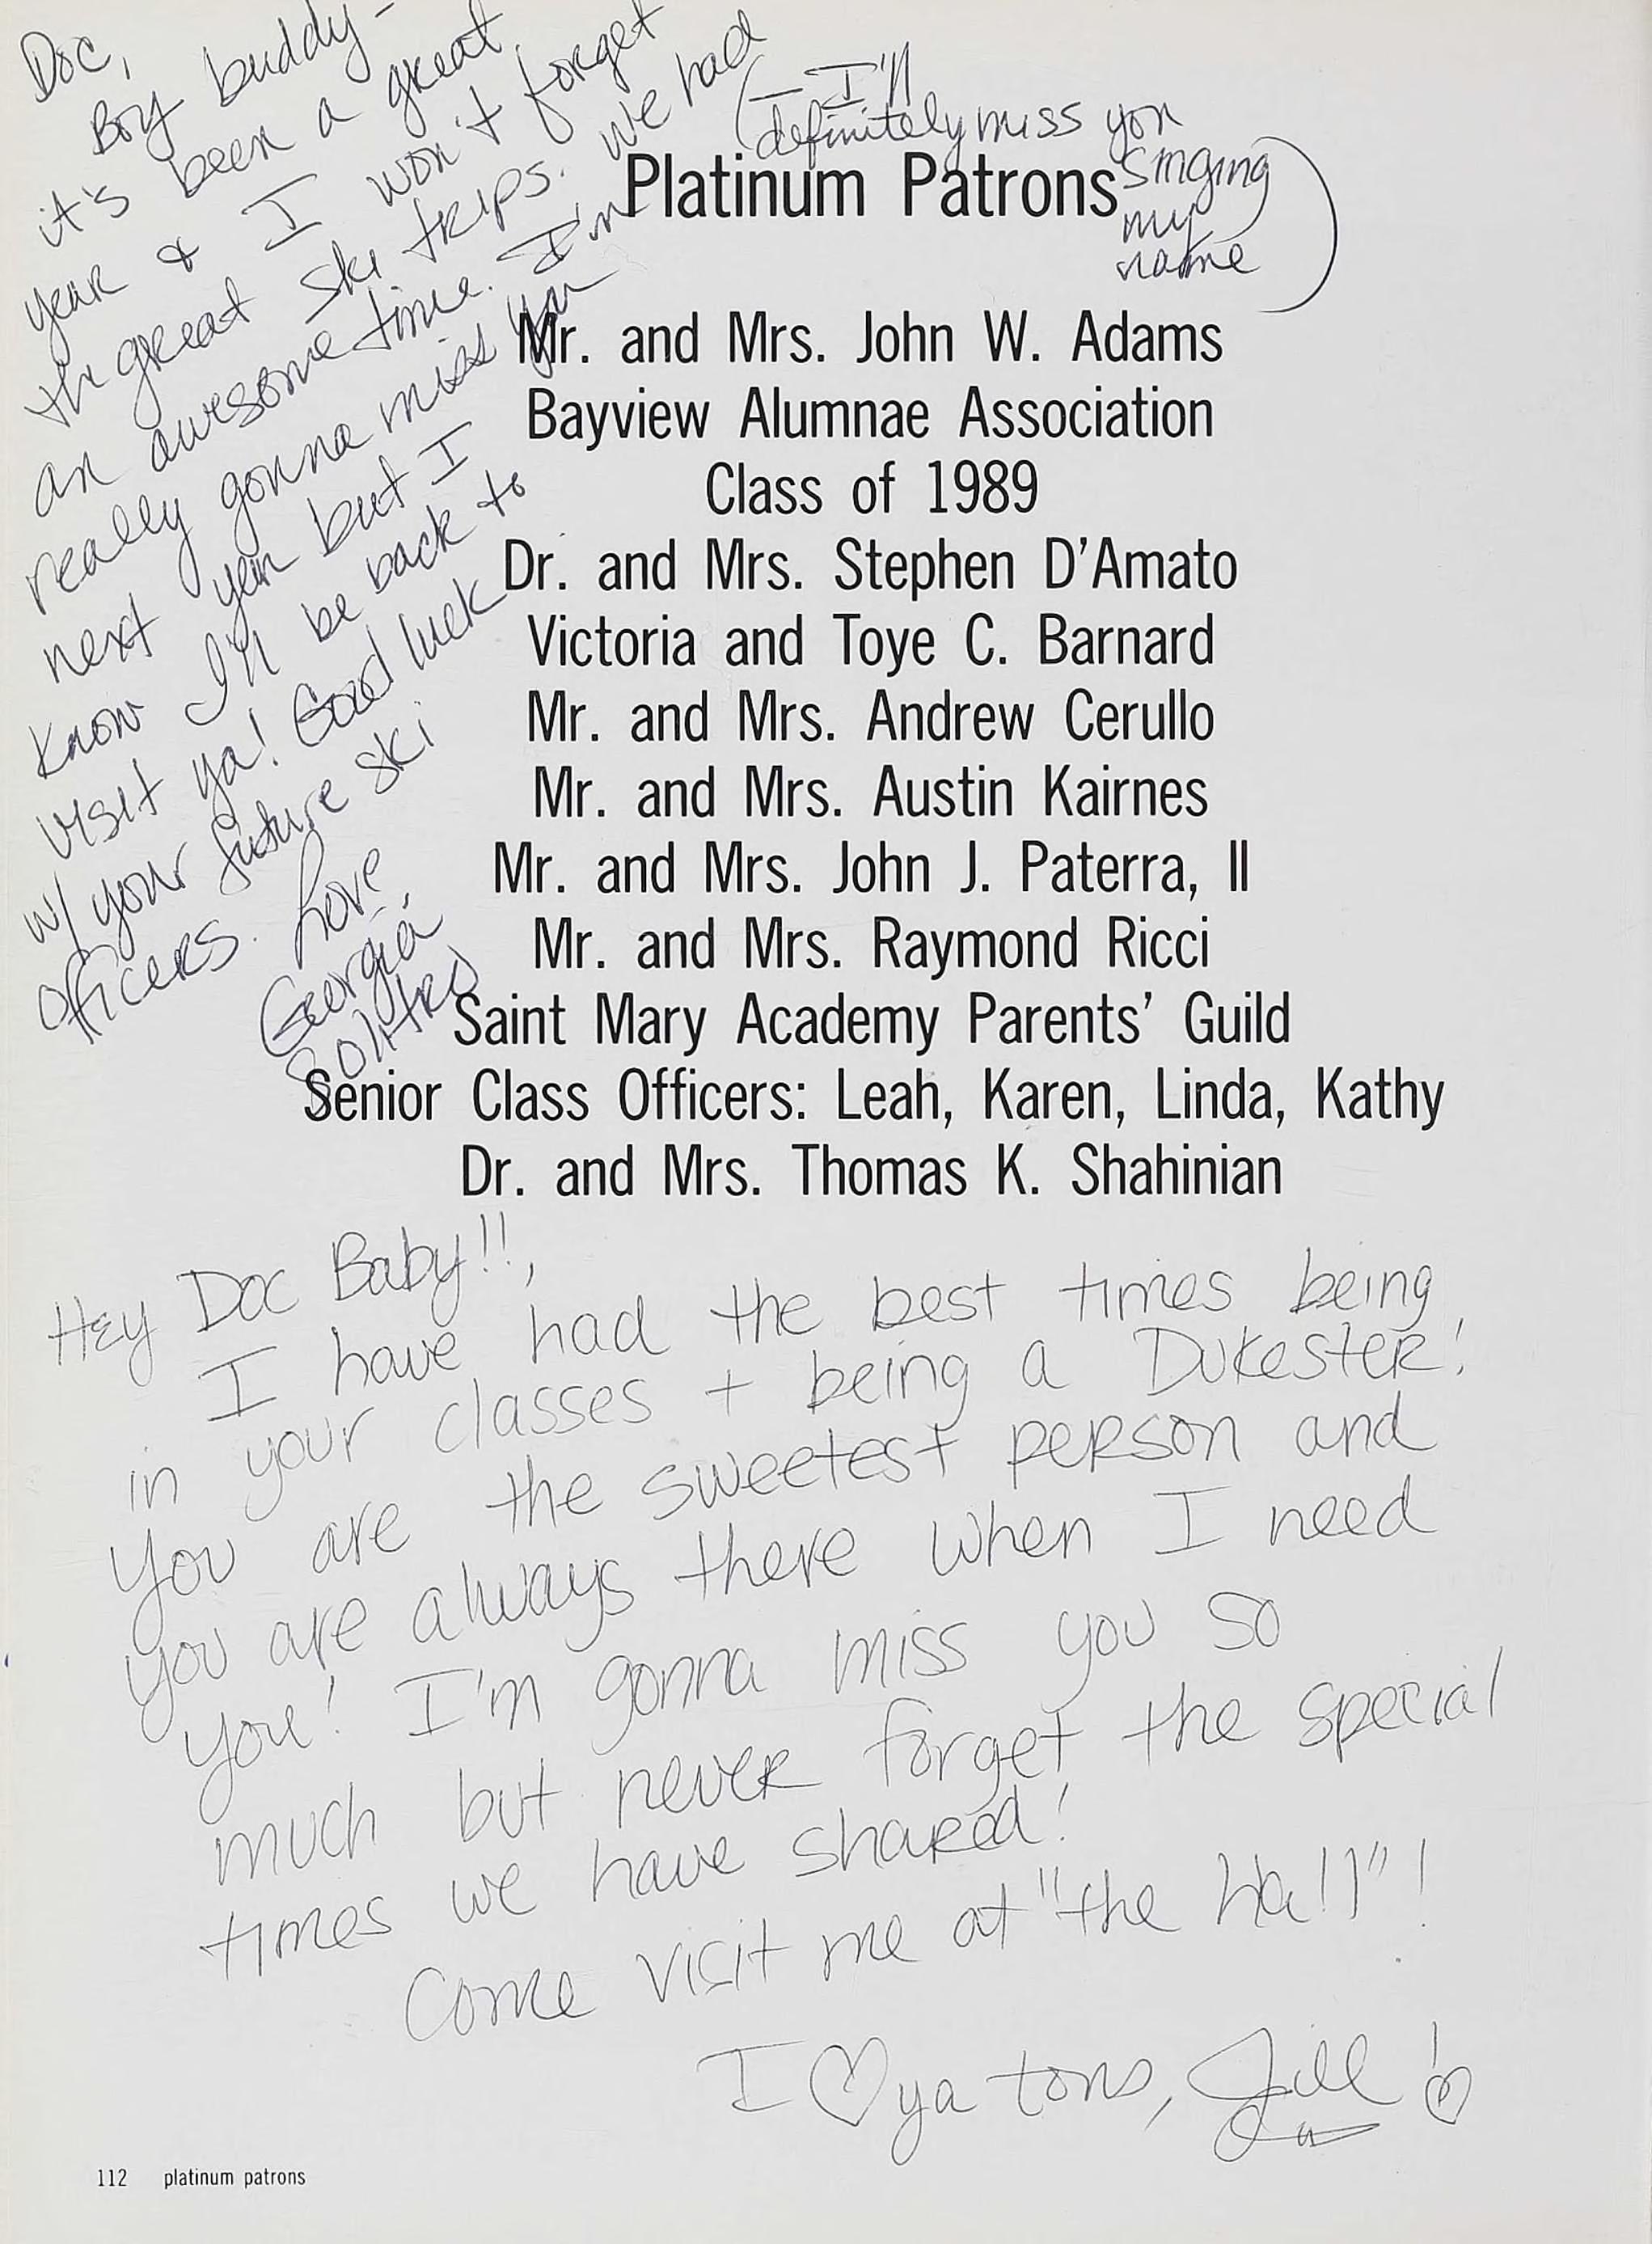 Doc,
Boy buddy -
it's been a great
year & I won't forget
the great ski trips. We had
an awesome time. I'm
really gonna miss you
next year but I
know I'll be back to
visit ya! Good luck
w/ your future ski
officers. Love
Georgia
Solitro
( - I'll
definitely miss you
singing
my
name )
Platinum Patrons
Mr. and Mrs. John W. Adams
Bayview Alumnae Association
Class of 1989
Dr. and Mrs. Stephen D'Amato
Victoria and Toye C. Barnard
Mr. and Mrs. Andrew Cerullo
Mr. and Mrs. Austin Kairnes
Mr. and Mrs. John J. Paterra, II
Mr. and Mrs. Raymond Ricci
Saint Mary Academy Parents' Guild
Senior Class Officers: Leah, Karen, Linda, Kathy
Dr. and Mrs. Thomas K. Shahinian
Hey Doc Baby!!,
I have had the best times being
in your classes + being a Dukester!
You are the sweetest person and
you are always there when I need
you! I'm gonna miss you so
much but never forget the special
times we have shared!
Come visit me at "the hall"!
I ♡ ya tons, Jill!
112 platinum patrons